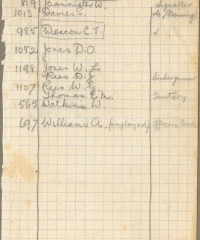 819 Bannister W. Signaller
1013 Davies S. (in training)
985 Deacon C.T.
1082 Jones D.O.
1198 Jones W.L.
Rees D.J.
1107 Rees W.J.
Thomas Sanitary
565 Watkins W
697 Williams A. (employed) Officers Cook